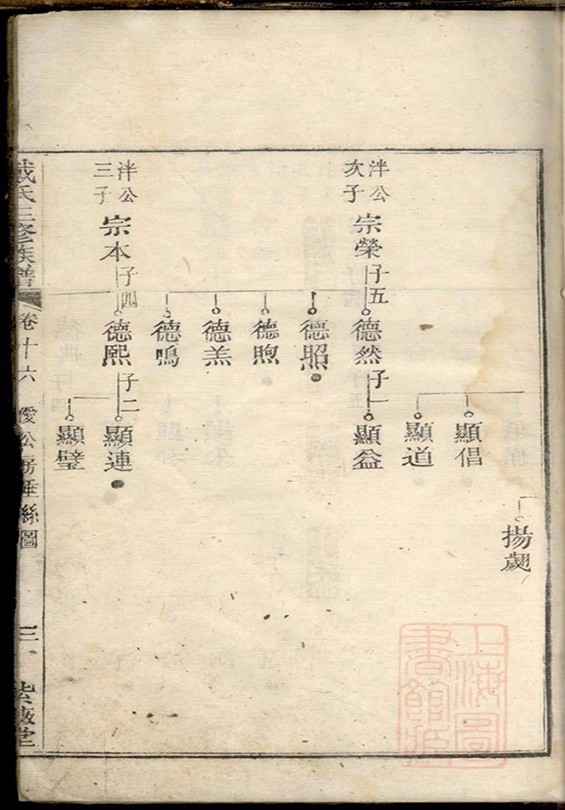 揚
顯倡
顯道
泮公次子
宗榮
子五
德然
子一
顯益
德照
德煦
德羔
德鳴
泮公三子
宗本
子四
德熙
子二
顯連
顯璧
戴氏三修族譜
卷十六
公房垂絲圖
三
紫薇堂
上海圖書館藏